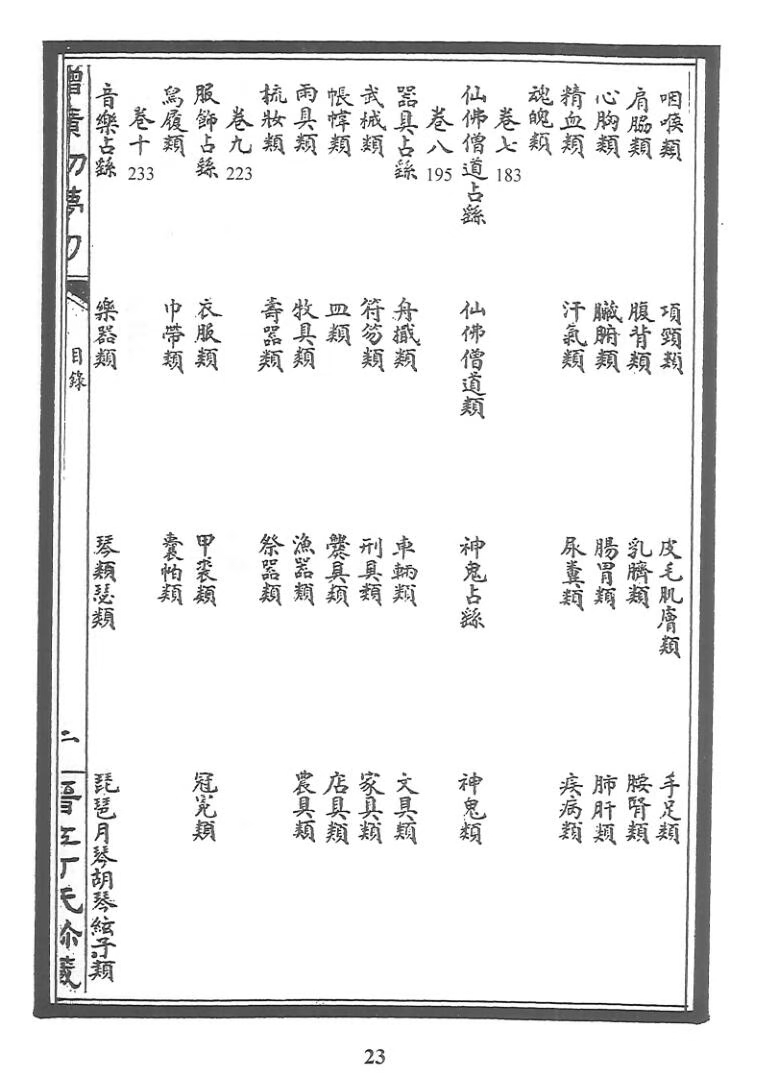 咽喉類 項頸類 皮毛肌膚類 手足類
肩脇類 腹背類 乳臍類 腰腎類
心胸類 臟腑類 腸胃類 肺肝類
精血類 汗氣類 尿糞類 疾病類
魂魄類
卷七 183
仙佛僧道占繇 仙佛僧道類 神鬼占繇 神鬼類
卷八 195
器具占繇 舟檝類 車輛類 文具類
武械類 符笏類 刑具類 家具類
帳幃類 皿類 爨具類 店具類
雨具類 牧具類 漁器類 農具類
梳妝類 壽器類 祭器類
卷九 223
服飾占繇 衣服類 甲裘類 冠冕類
舄履類 巾帶類 囊帕類
卷十 233
音樂占繇 樂器類 琴類瑟類 琵琶月琴胡琴絃子類
目錄
二
23